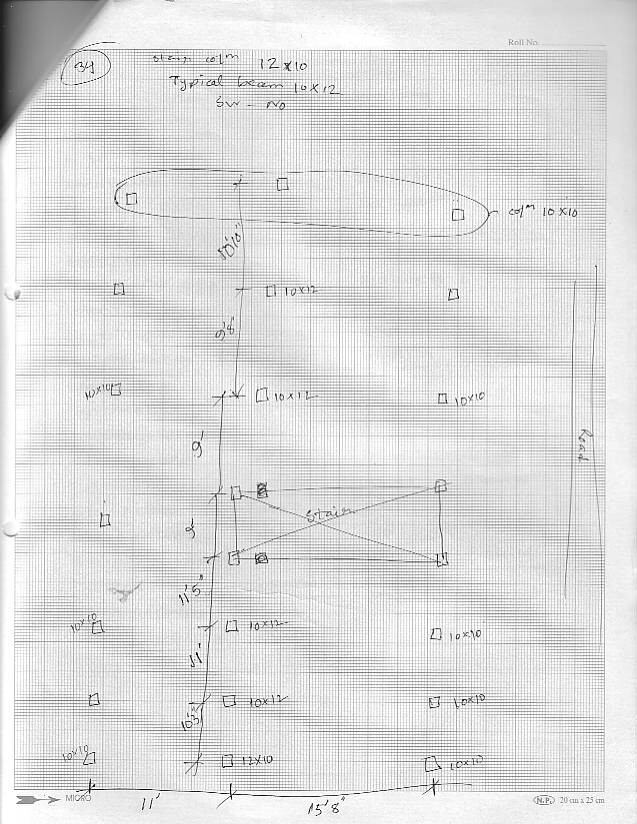 Roll No.
34
Stair colm 12x10
Typical beam 10x12
SW - NO
colm 10x10
10'10"
10x12
9'8"
10x10
10x12
10x10
9'
Stair
Road
11'5"
10x10
10x12
10x10
11'
10x12
10x10
10'3"
10x10
12x10
10x10
MICRO
N.P. 20 cm x 25 cm
11'
15'8"